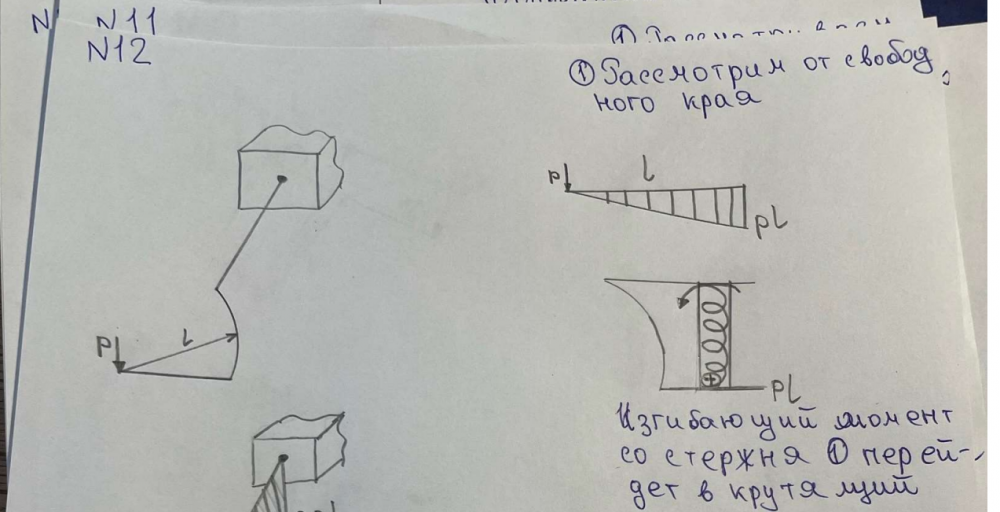 N11
N12
① Рассмотрим от свобод
ного края
P
l
P
l
pl
pl
Изгибающий момент
со стержня ① перей-
дет в крутящий